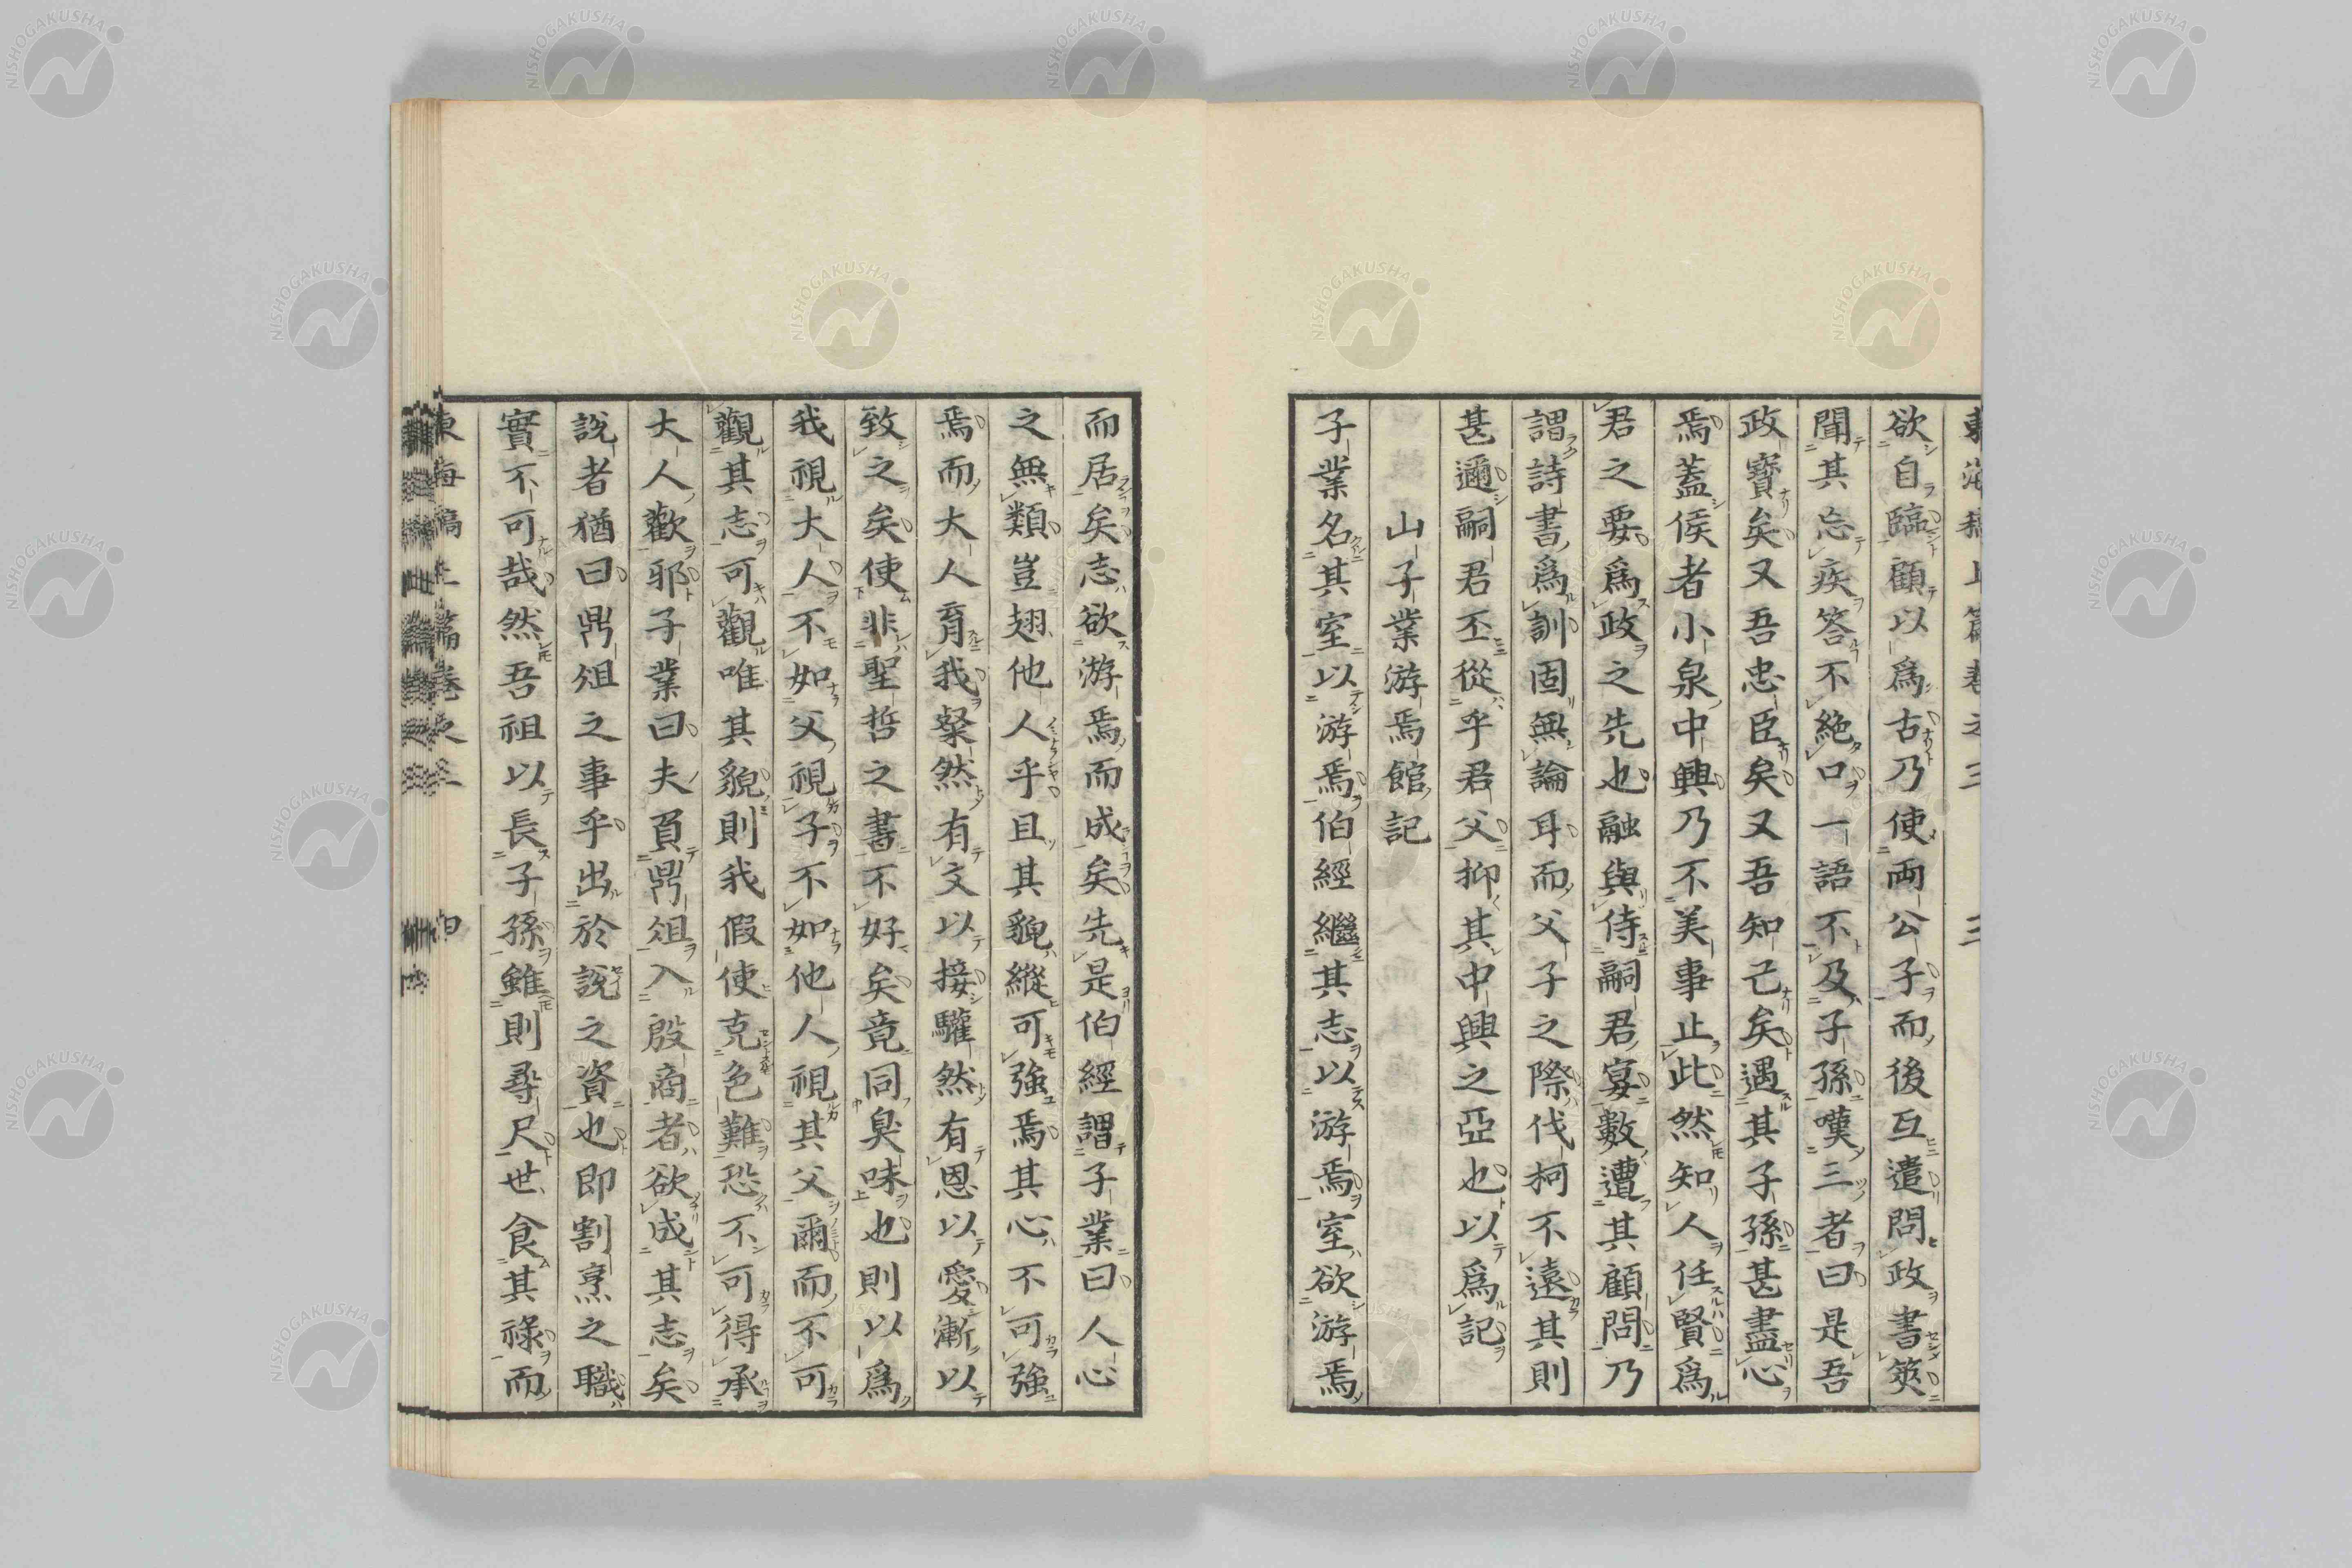 東海稿上篇卷之三 三
欲自臨顧以爲古乃使兩公子而後互遣問政書筴
聞其忘疾答不絶口一語不及子孫嘆三者曰是吾
政寶矣又吾忠臣矣又吾知己矣遇其子孫甚盡心
焉蓋侯者小泉中興乃不美事止此然知人任賢爲
君之要爲政之先也融與侍嗣君宴數遭其顧問乃
謂詩書爲訓固無論耳而父子之際伐柯不遠其則
甚邇嗣君丕從乎君父抑其中興之亞也以爲記
山子業游焉館記
子業名其室以游焉伯經繼其志以游焉室欲游焉
而居矣志欲游焉而成矣先是伯經謂子業曰人心
之無類豈翅他人乎且其貌縱可強焉其心不可強
焉而大人育我粲然有文以接驩然有恩以愛漸以
致之矣使非聖哲之書不好矣竟同臭味也則以爲
我視大人不如父視子不如他人視其父爾而不可
觀其志可觀唯其貌則我假使克色難恐不可得承
大人歡邪子業曰夫負鼎俎入殷商者欲成其志矣
說者猶曰鼎俎之事乎出於說之資也即割烹之職
實不可哉然吾祖以長子孫雖則尋尺世食其祿而
東海稿上篇卷之三 四
NISHOGAKUSHA